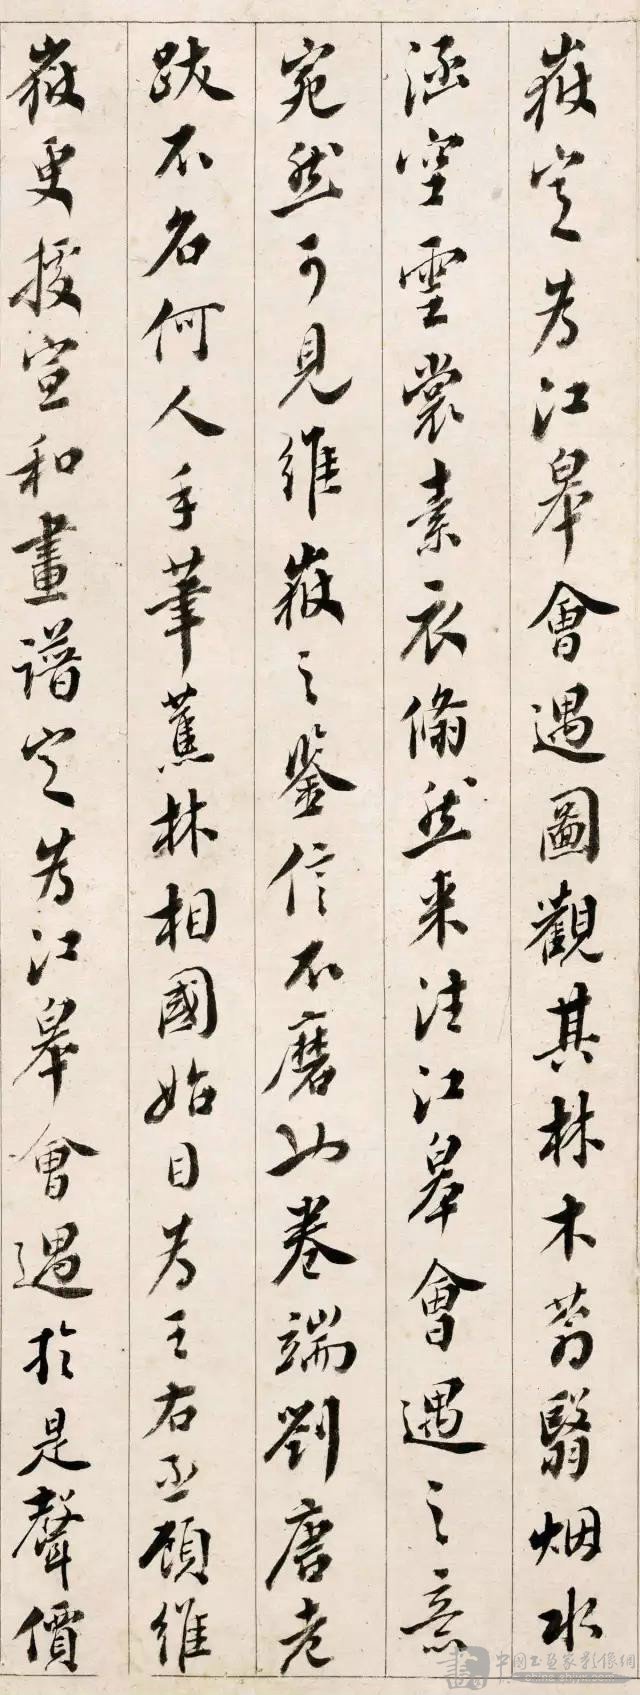 嶽定為江皋會遇圖觀其林木蓊翳烟水
涵空雲裳素衣翛然来往江皋會遇之意
宛然可見維嶽之鑒信不磨也卷端劉唐老
跋不名何人手筆蕉林相國始目為王右丞顧維
嶽更援宣和畫譜定為江皋會遇於是聲價
中国书画家影像網